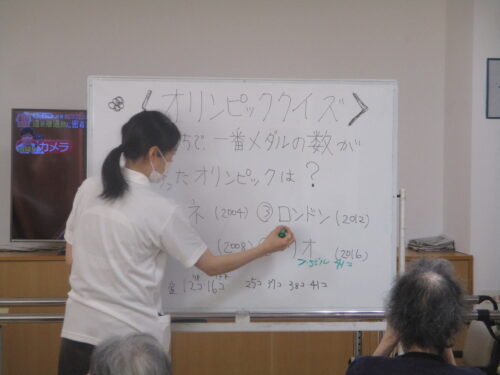 カメラ
《オリンピッククイズ》
ちで、一番メダルの数が
ったオリンピックは?
ネ (2004) ③ロンドン (2012)
(2008) リオ (2016)
ブラジル 41コ
金 12コ 16コ 25コ 37コ 38コ 41コ